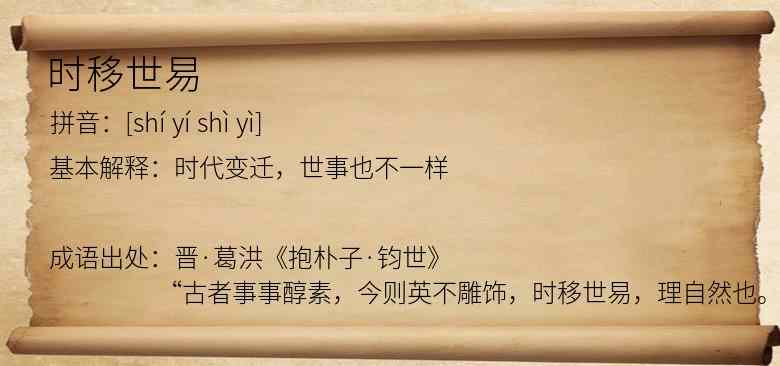 时移世易
拼音：[shí yí shì yì]
基本解释：时代变迁，世事也不一样
成语出处：晋·葛洪《抱朴子·钧世》
“古者事事醇素，今则英不雕饰，时移世易，理自然也。